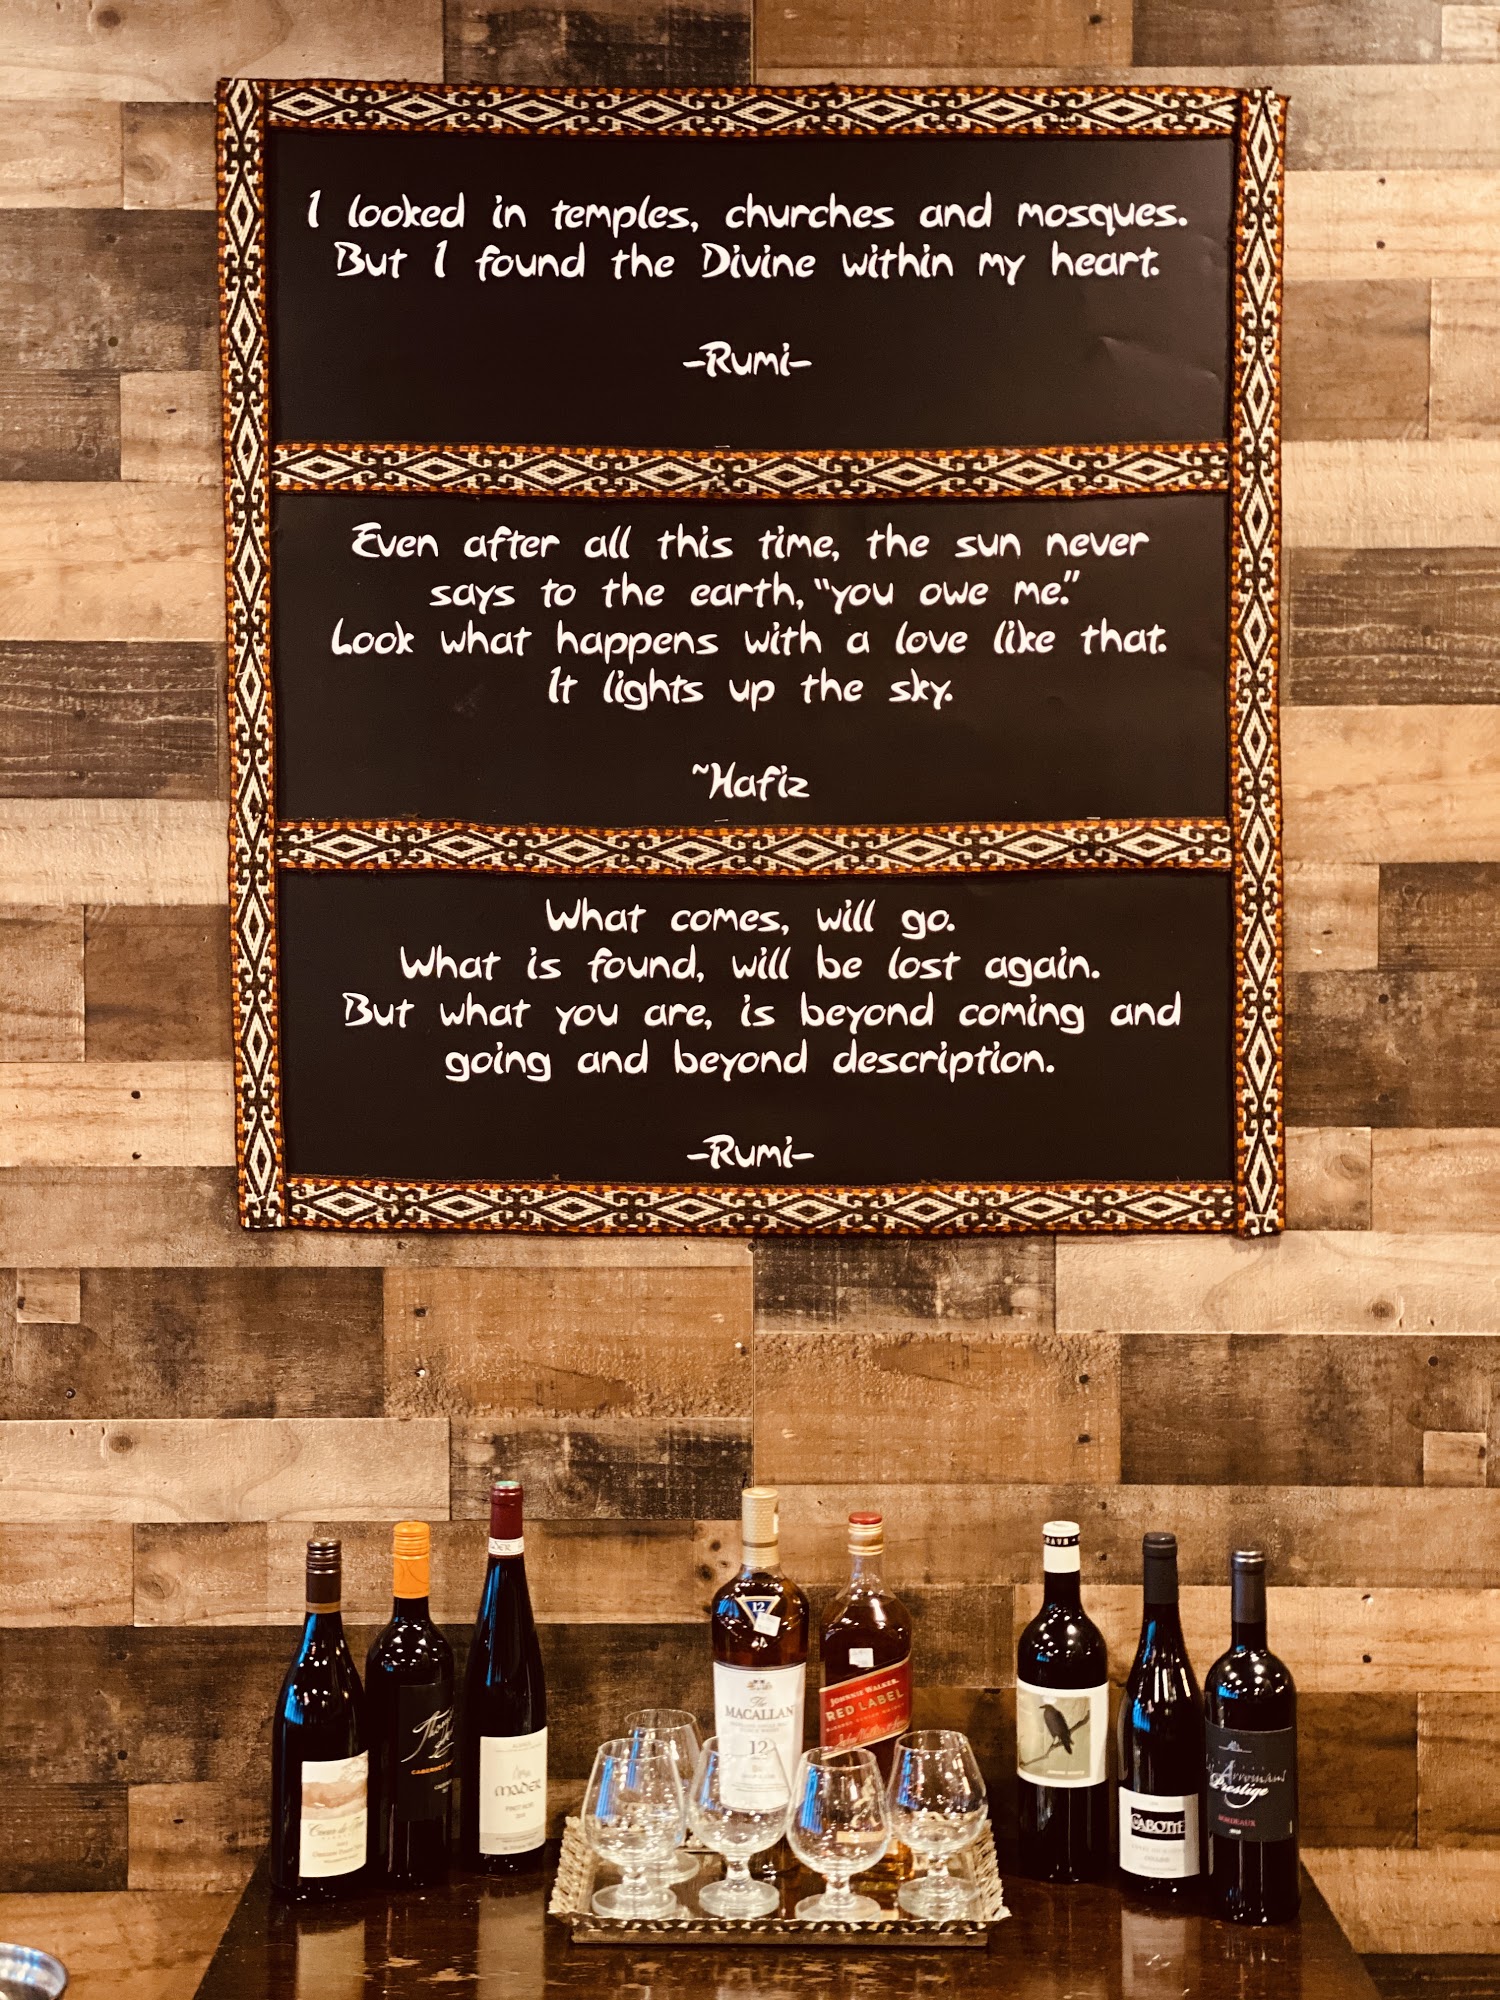 I looked in temples, churches and mosques.
But I found the Divine within my heart.
-Rumi-
Even after all this time, the sun never
says to the earth, "you owe me."
Look what happens with a love like that.
It lights up the sky.
~Hafiz
What comes, will go.
What is found, will be lost again.
But what you are, is beyond coming and
going and beyond description.
-Rumi-
12
The
MACALLAN
12
JOHNNIE WALKER.
RED LABEL
MADER
PINOT NOIR
CABERNET
CABOTTE
Prestige
BORDEAUX